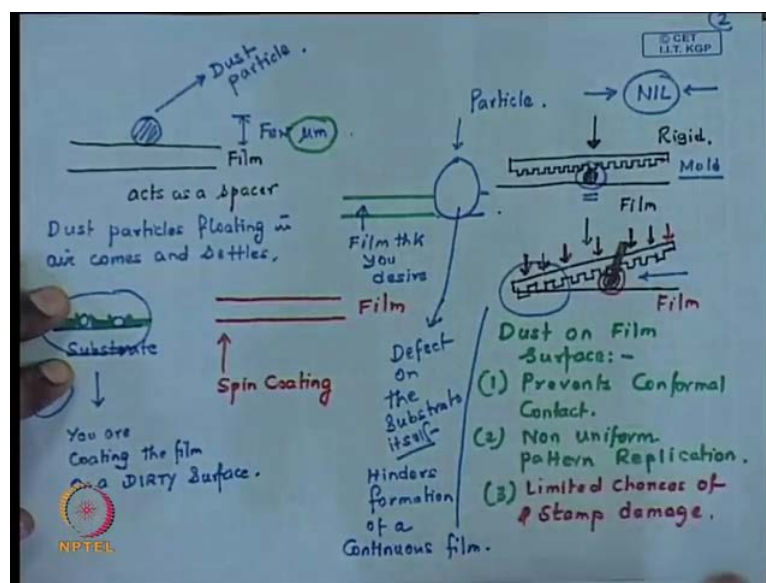 2
© CET
I.I.T. KGP
Dust
particle.
Few μm
Film
acts as a spacer
Dust particles floating in
air comes and settles.
Substrate
You are
Coating the film
on a DIRTY Surface.
Film
Spin Coating
Particle.
Film thk
you
desire
Defect
on
the
Substrate
itself
Hinders
formation
of a
Continuous film.
NIL
Rigid.
Mold
Film
Film
Dust on Film
Surface:-
(1) Prevents Conformal
Contact.
(2) Non Uniform
pattern Replication.
(3) Limited Chances of
Stamp damage.
NPTEL